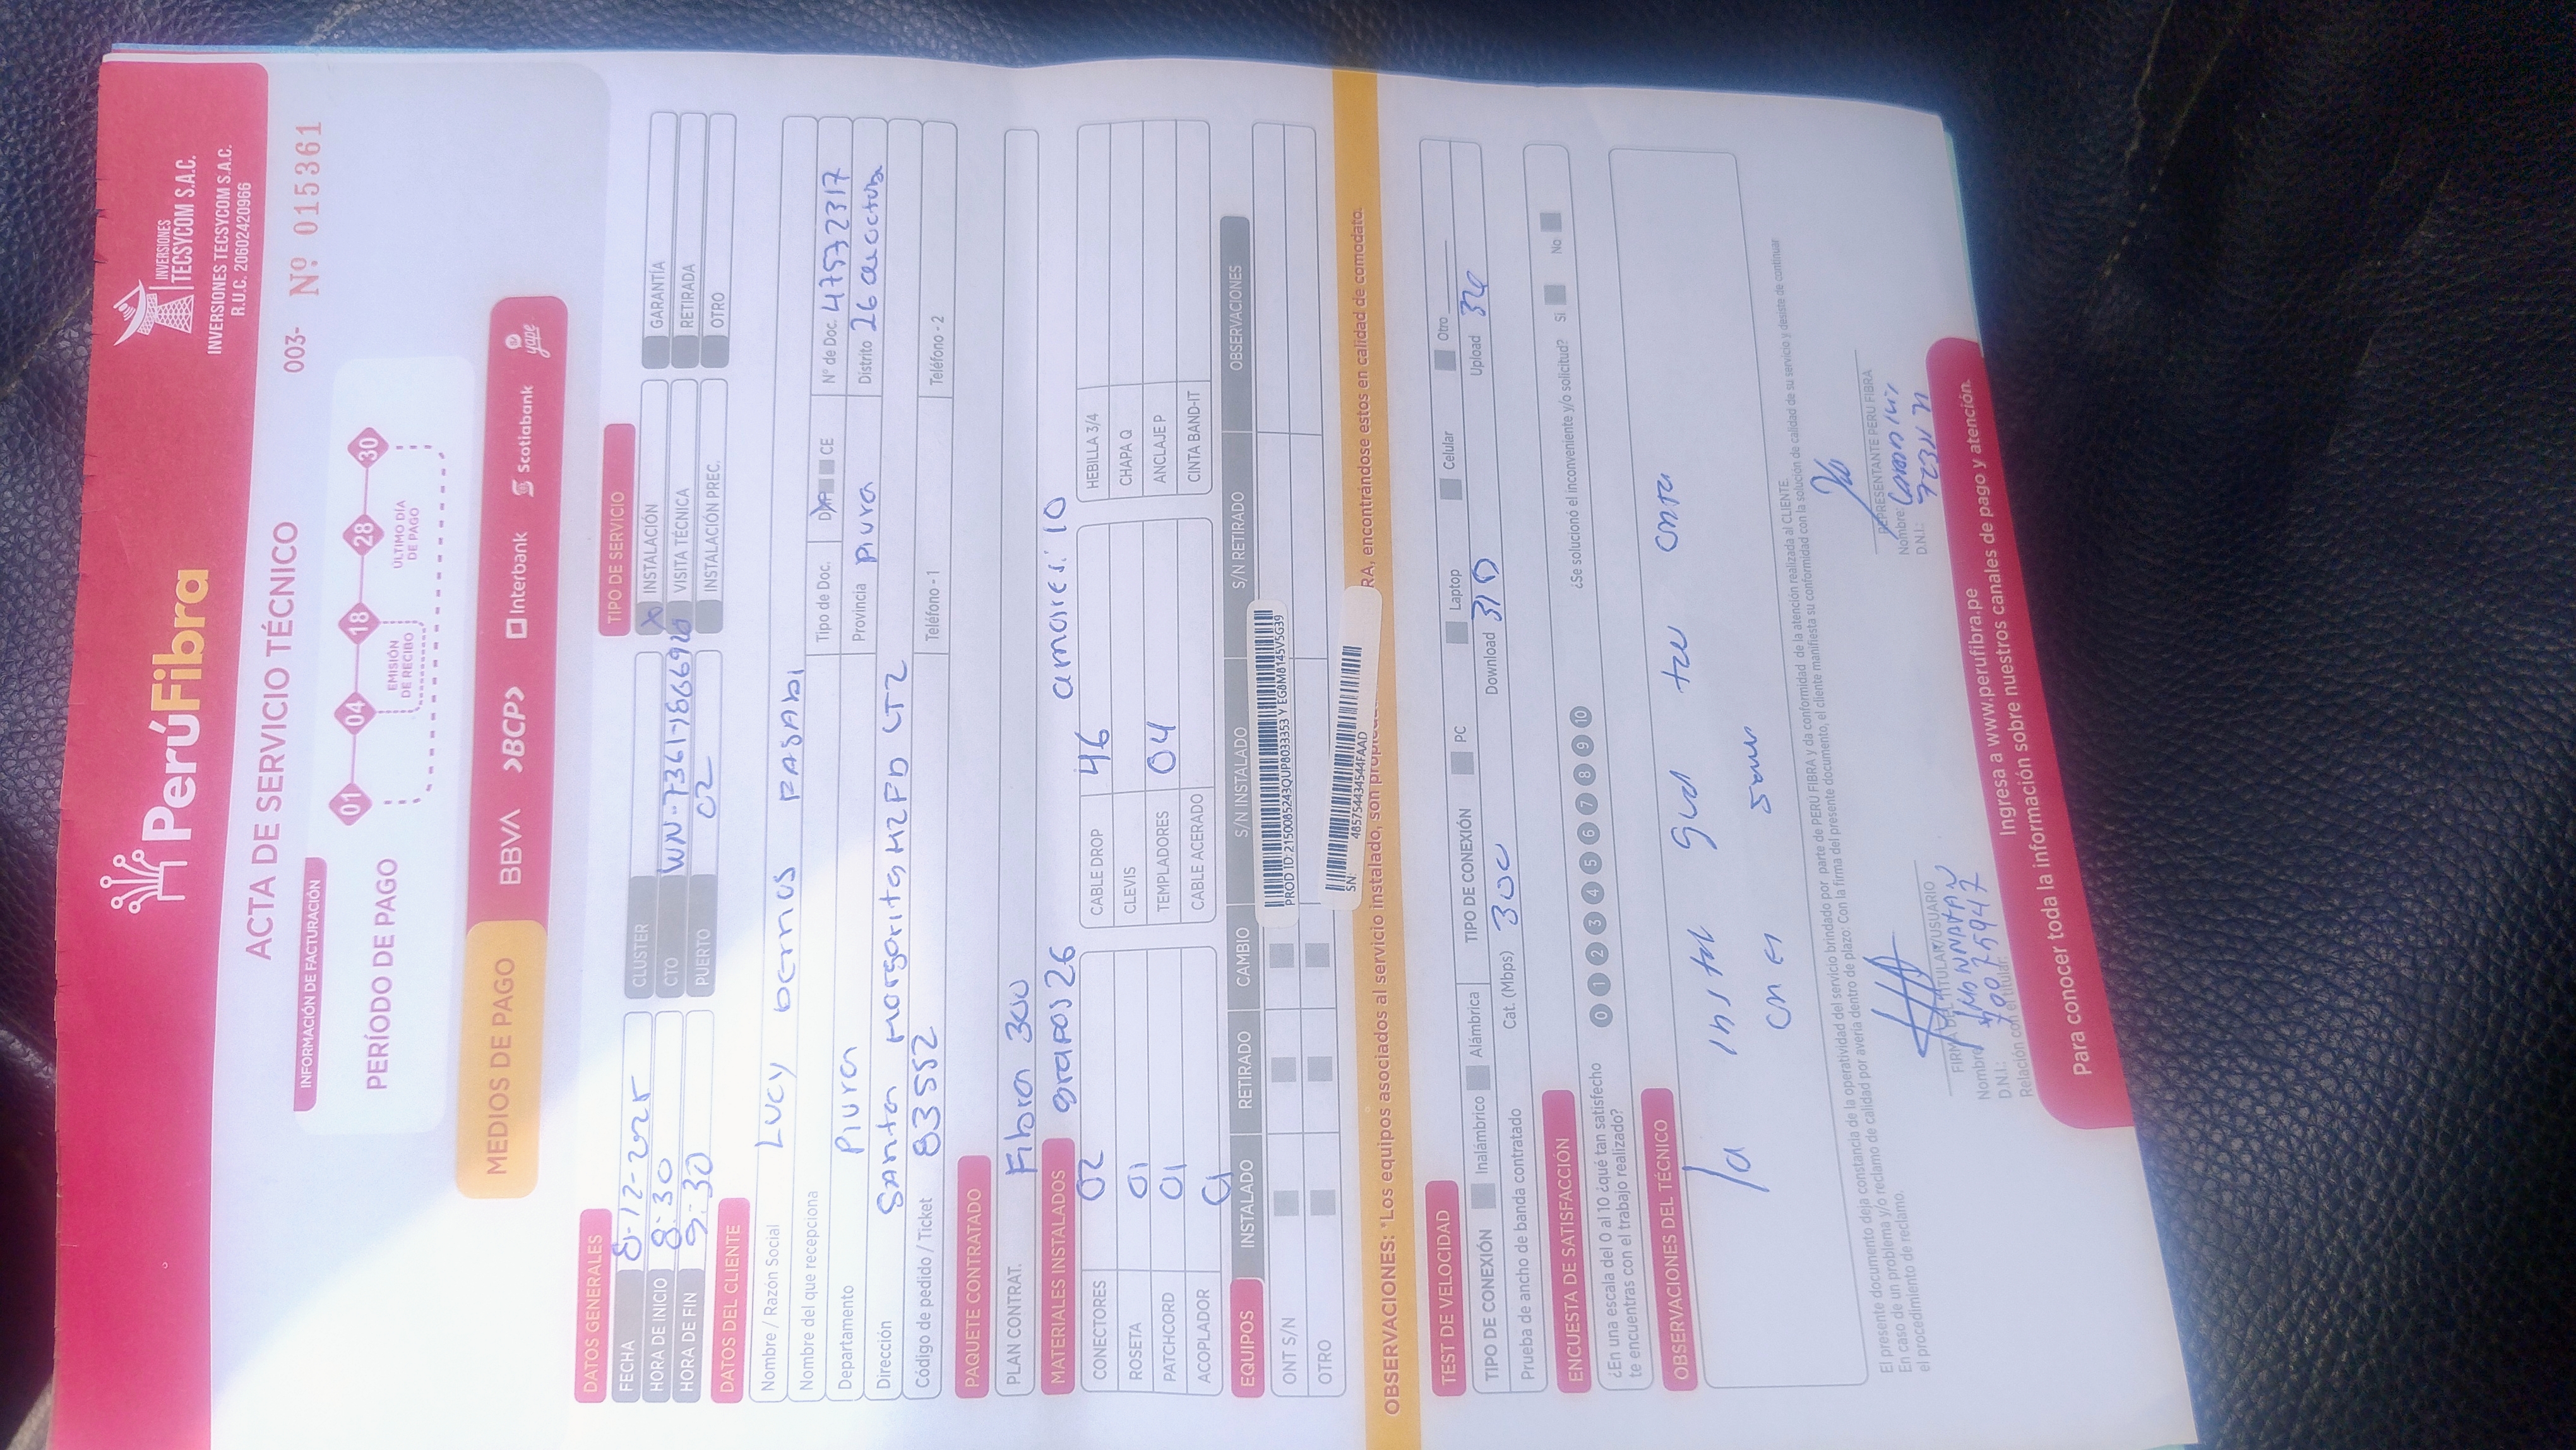 PerúFibra
INVERSIONES
TECSYCOM S.A.C.
INVERSIONES TECSYCOM S.A.C.
R.U.C. 20602420966
ACTA DE SERVICIO TÉCNICO
003- Nº 015361
INFORMACIÓN DE FACTURACIÓN
PERÍODO DE PAGO
01 04 18 28 30
EMISIÓN DE RECIBO
ÚLTIMO DÍA DE PAGO
MEDIOS DE PAGO
BBVA >BCP> Interbank Scotiabank yape
DATOS GENERALES
FECHA 8-12-2025
HORA DE INICIO 8:30
HORA DE FIN 9:30
CLUSTER
CTO
PUERTO 02
TIPO DE SERVICIO
X INSTALACIÓN
VISITA TÉCNICA
INSTALACIÓN PREC.
GARANTÍA
RETIRADA
OTRO
DATOS DEL CLIENTE
Nombre / Razón Social Lucy
Nombre del que recepciona
Tipo de Doc. CE
Nº de Doc. 47572317
Departamento Piura
Provincia Piura
Distrito 26 de octubre
Dirección Santa Margarita MZ PD LT2
Código de pedido / Ticket 83552
Teléfono - 1
Teléfono - 2
PAQUETE CONTRATADO
PLAN CONTRAT. Fibra 300
MATERIALES INSTALADOS grapas 26 amarres: 10
CONECTORES 02
ROSETA 01
PATCHCORD 01
ACOPLADOR 01
CABLE DROP 46
CLEVIS
TEMPLADORES 04
CABLE ACERADO
HEBILLA 3/4
CHAPA Q
ANCLAJE P
CINTA BAND-IT
EQUIPOS INSTALADO RETIRADO CAMBIO S/N INSTALADO S/N RETIRADO OBSERVACIONES
ONT S/N
PROD ID:2150085243QUP8033353 Y EG8M8145V5G39
OTRO
SN: 485754434544FAAD
OBSERVACIONES: "Los equipos asociados al servicio instalado, son RA, encontrándose estos en calidad de comodato.
TEST DE VELOCIDAD
TIPO DE CONEXIÓN Inalámbrico Alámbrica TIPO DE CONEXIÓN PC Laptop Celular Otro
Prueba de ancho de banda contratado Cat. (Mbps) 300 Download 310 Upload 320
ENCUESTA DE SATISFACCIÓN
¿En una escala del 0 al 10 ¿qué tan satisfecho
te encuentras con el trabajo realizado?
0 1 2 3 4 5 6 7 8 9 10
¿Se solucionó el inconveniente y/o solicitud? Si No
OBSERVACIONES DEL TÉCNICO
la
El presente documento deja constancia de la operatividad del servicio brindado por parte de PERÚ FIBRA y da conformidad de la atención realizada al CLIENTE.
En caso de un problema y/o reclamo de calidad por avería dentro de plazo: Con la firma del presente documento, el cliente manifiesta su conformidad con la solución de calidad de su servicio y desiste de continuar
el procedimiento de reclamo.
FIRMA DEL TITULAR/USUARIO
Nombre:
D.N.I.: 70025947
Relación con el titular:
REPRESENTANTE PERÚ FIBRA
Nombre:
D.N.I.:
Para conocer toda la información sobre nuestros canales de pago y atención.
Ingresa a www.perufibra.pe